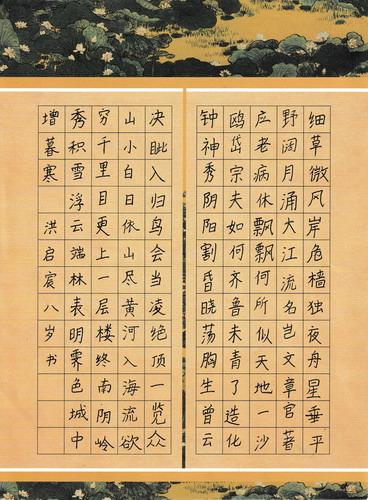 细草微风岸危樯独夜舟星垂平
野阔月涌大江流名岂文章官著
应老病休飘飘何所似天地一沙
鸥岱宗夫如何齐鲁未青了造化
钟神秀阴阳割昏晓荡胸生曾云
决眦入归鸟会当凌绝顶一览众
山小白日依山尽黄河入海流欲
穷千里目更上一层楼终南阴岭
秀积雪浮云端林表明霁色城中
增暮寒 洪启宸八岁书